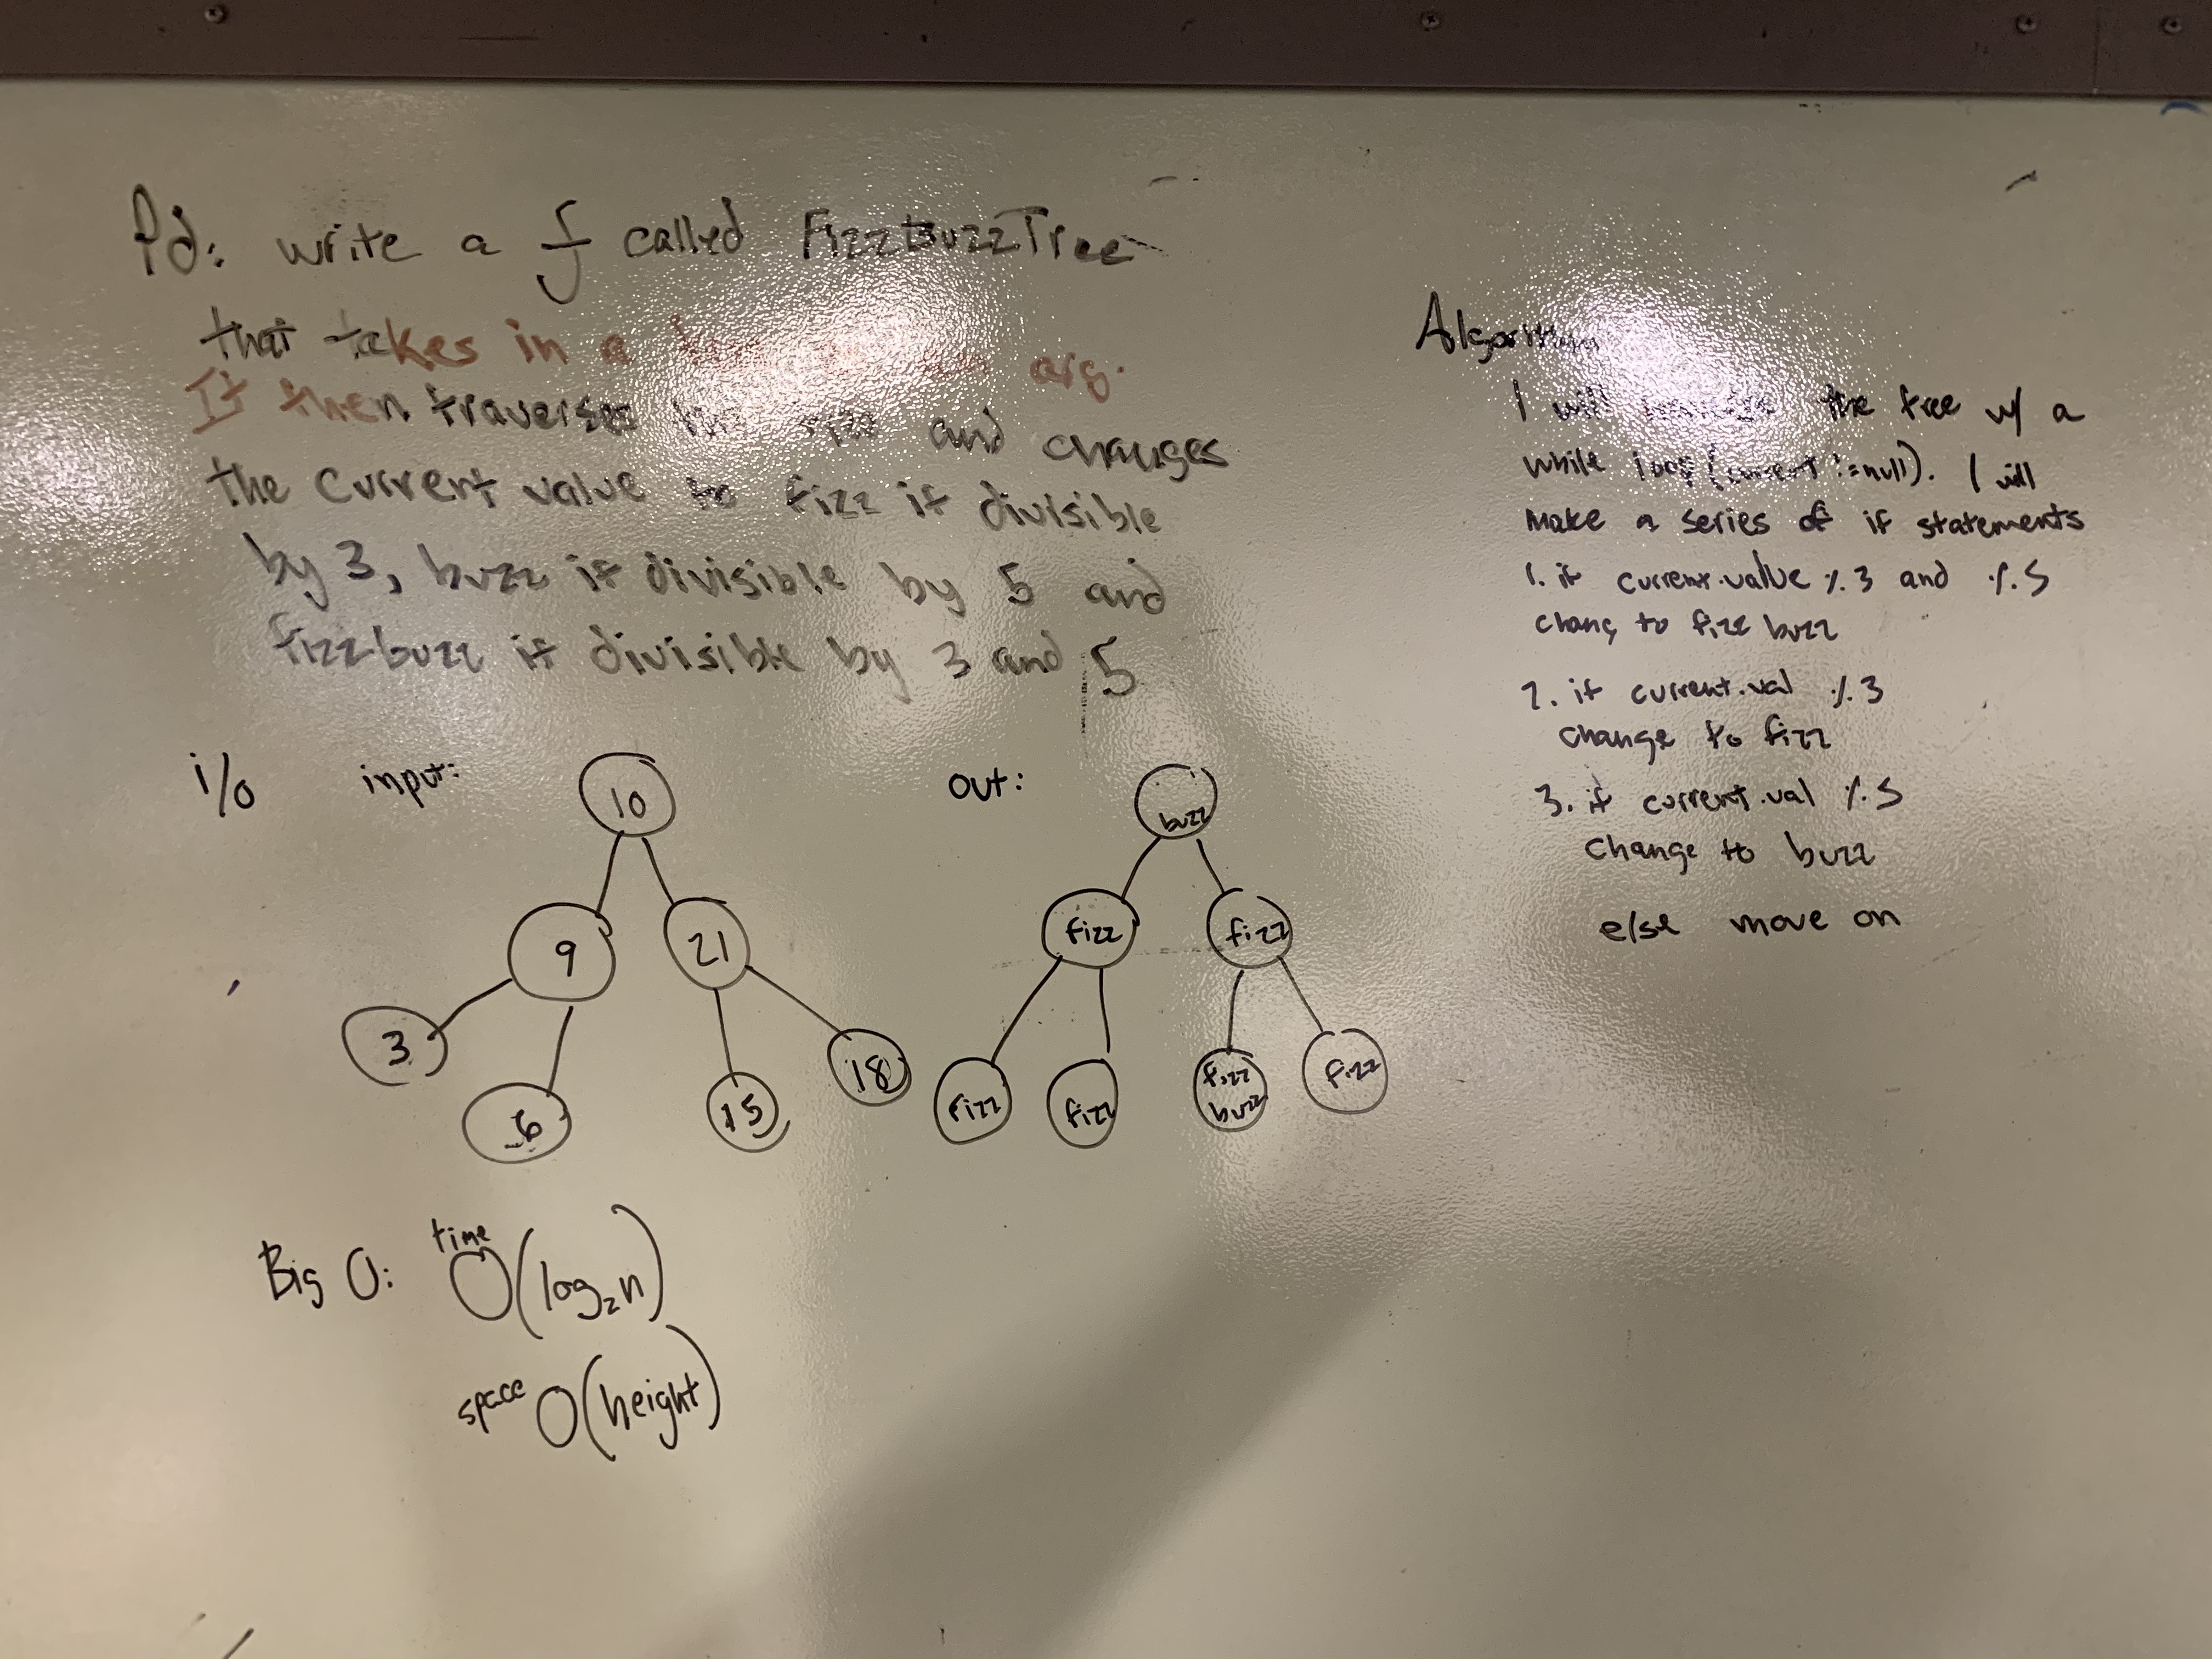 Pd: write a f called FizzBuzzTree
that takes in a arg.
It then traverses the tree and changes
the current value to fizz if divisible
by 3, buzz if divisible by 5 and
fizzbuzz if divisible by 3 and 5
i/o input: out:
10
9 21
3 18
6 15
buzz
fizz fizz
fizz fizz fizz buzz fizz
Big O: time O(log₂n)
space O(height)
Algorithm
I will the tree w/ a
while loop (current != null). I will
make a series of if statements
1. if current.value %3 and %5
chang to fizz buzz
2. if current.val %3
change to fizz
3. if current.val %5
change to buzz
else move on